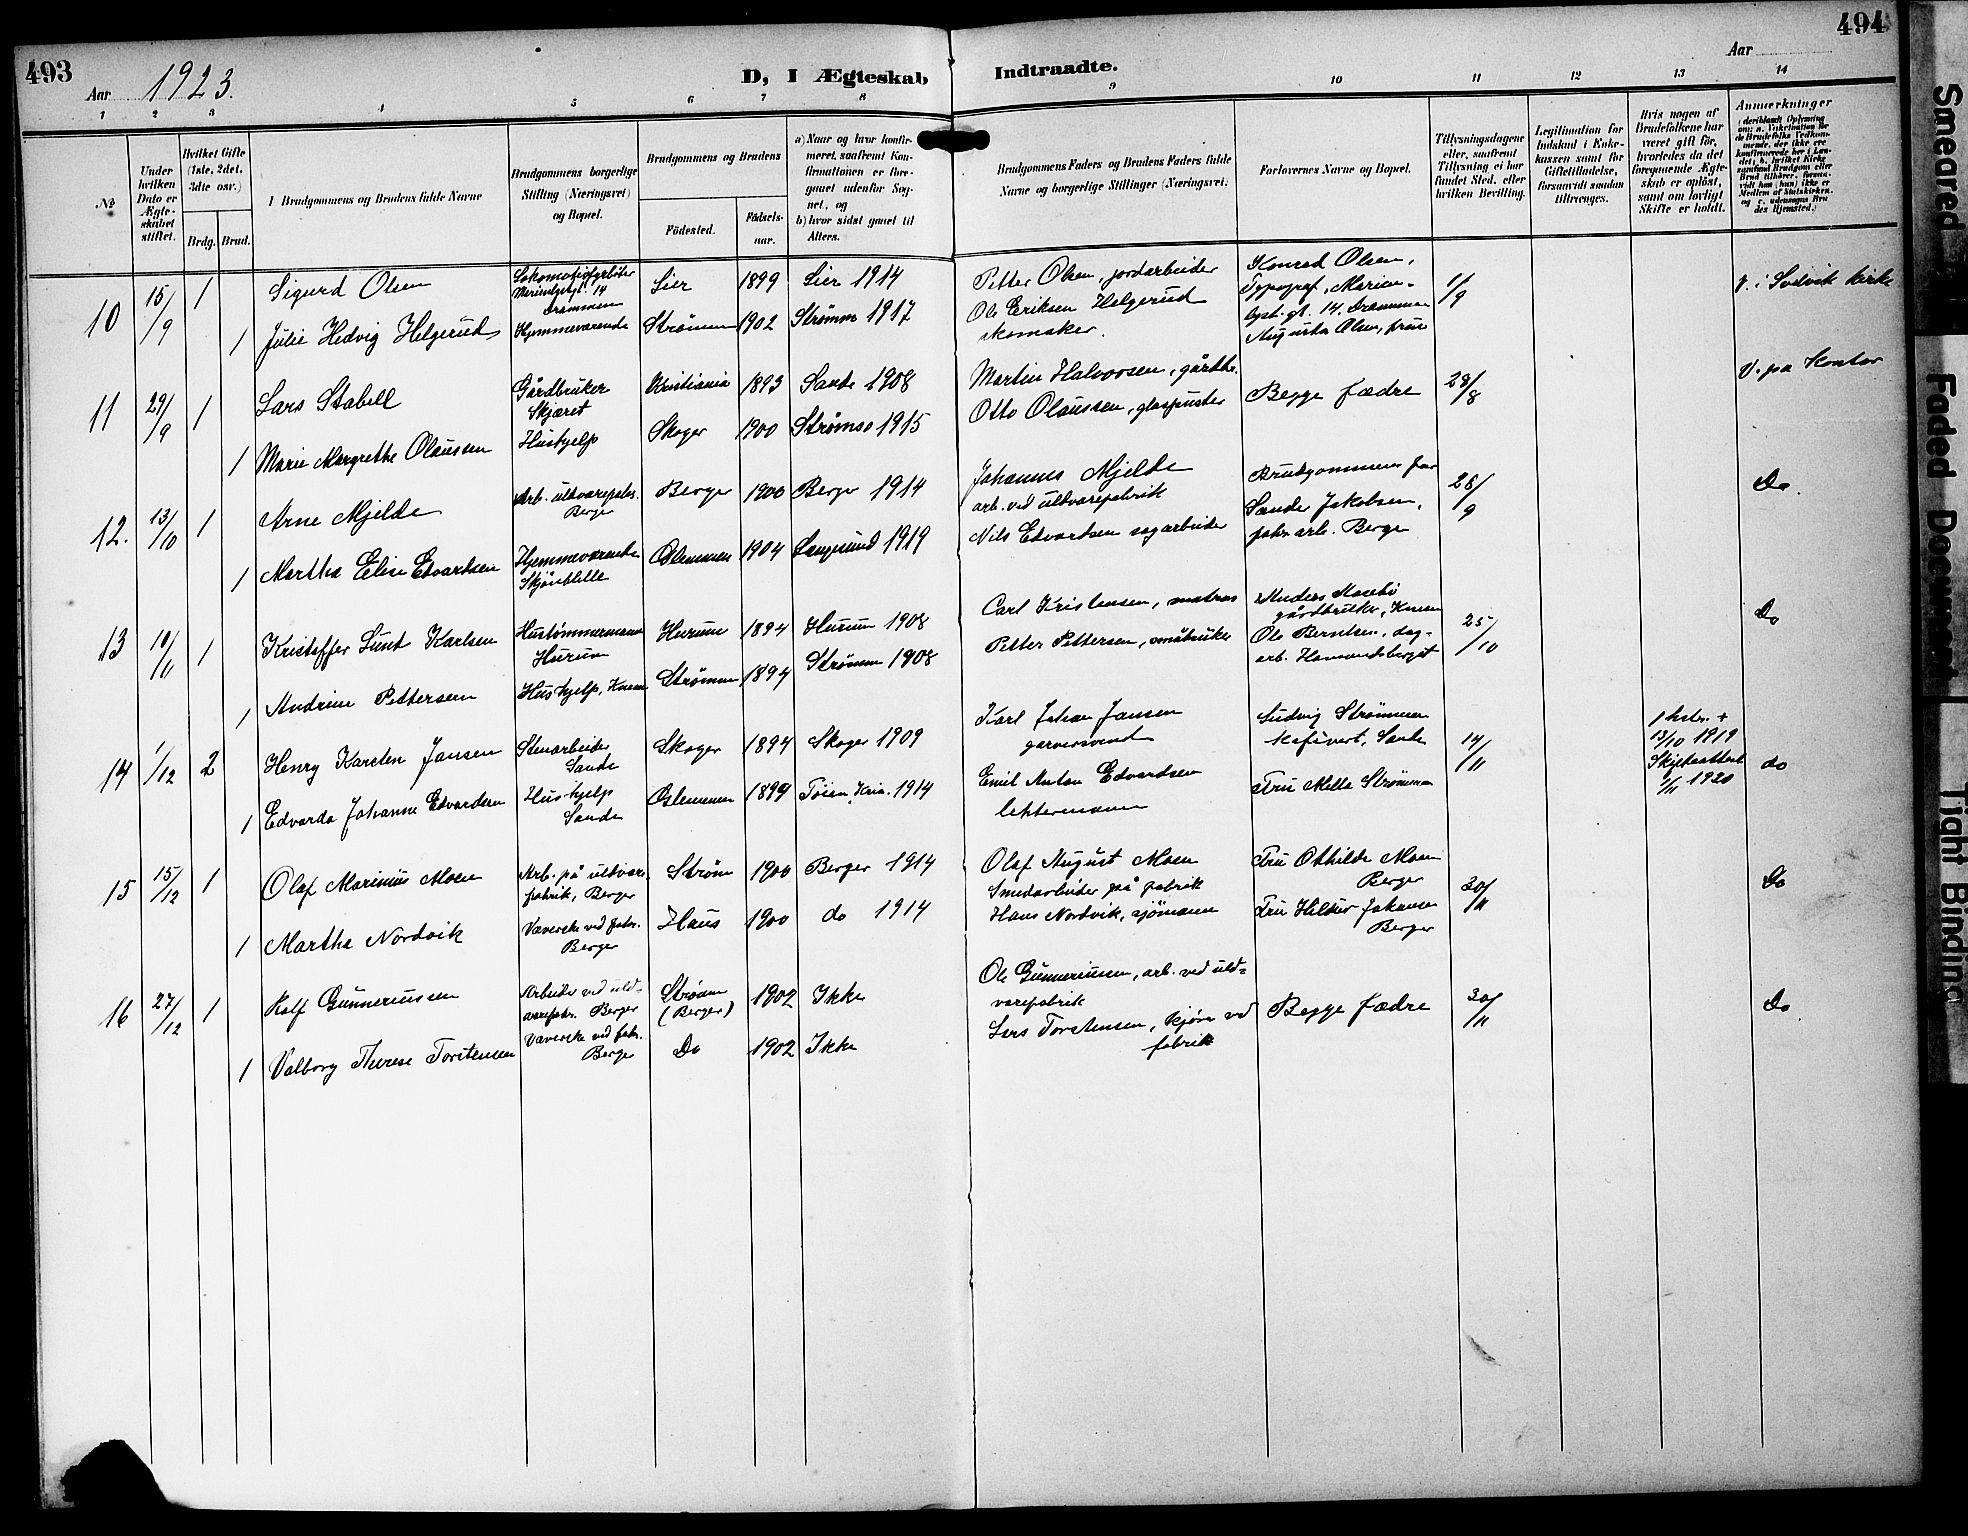 493
Aar 1923.
D, I Ægteskab Indtraadte.
Aar
494
1 2 3 4 5 6 7 8 9 10 11 12 13 14
No
Under hvilken Dato er Ægteskabet stiftet.
Hvilket Gifte (1ste, 2det, 3dte osv.)
Brdg. Brud.
Brudgommens og Brudens fulde Navne
Brudgommens borgerlige Stilling (Næringsvei) og Bopæl.
Brudgommens og Brudens
Födested.
Födselsaar.
a) Naar og hvor konfirmeret, saafremt Konfirmationen er foregaaet udenfor Sognet, og
b) hvor sidst gaaet til Alters.
Brudgommens Faders og Brudens Faders fulde Navne og borgerlige Stillinger (Næringsvei).
Forlovernes Navne og Bopæl.
Tillysningsdagene eller, saafremt Tillysning ei har fundet Sted, efter hvilken Bevilling.
Legitimation for Indskud i Enkekassen samt for Giftetilladelse, forsaavidt saadan tiltrænges.
Hvis nogen af Brudefolkene har været gift før, hvorledes da det foregaaende Ægteskab er oplöst, samt om lovligt Skifte er holdt.
Anmærkninger
10 15/9 1 Sigurd Olsen
Drammen
Lier 1899 Lier 1914
Petter Olsen, jordarbeider
Konrad Olsen,
Typograf, Marien-
lyst. gt. 14. Drammen
1/9
V. i Sodvik kirke
1 Julie Hedvig Helgerud
Hjemmeværende
Strømm 1902 Strømm 1917
Ole Eriksen Helgerud
skomaker.
Augusta Olsen, frue
11 29/9 1 Lars Stabell
Gårdbruker
Skjæret
Kristiania 1893 Sande 1908
Martin Halvorsen, gårdbr.
Begge fædre
28/8
V. på Kontor
1 Marie Margrethe Olaussen
Hushjelp
Skoger 1900 Strømsø 1915
Otto Olaussen, glaspuster
12. 13/10 1 Arne Mjelde
Arb. uldvarefabr.
Berger
Berger 1900 Berger 1914
Johannes Mjelde
arb. ved uldvarefabrik
Brudgommens far
28/9
Do.
1 Martha Elise Edvardsen
Hjemmeværende
Skjønblille
1904 Langesund 1919
Nils Edvardsen sagarbeider
Sande Jakobsen,
fabr. arb. Berge
13 10/11 1 Kristoffer Lund Karlsen
Hustømmermann
Hurum
Hurum 1894 Hurum 1908
Carl Kristensen, matros
gårdbruker, Knem
25/10
Do
1 Andrine Pettersen
Hushjelp, Knem
Strømm 1894 Strømm 1908
Petter Pettersen, småbruker
Ole Berntsen, dag-
arb. Hamondsberget
14 1/12 2 Henry Karsten Jansen
Stenarbeider
Sande
Skoger 1894 Skoger 1909
Karl Johan Jansen
garversvend
Ludvig Strømmen
Kafévert, Sande
14/11
1 hstr. +
13/10 1919
Skifteattest
6/11 1920
do
1 Edvarda Johanne Edvardsen
Hushjelp
Sande
1899 Tøien, Kria. 1914
Emil Anton Edvardsen
lektermann
Fru Mella Strømmen
15 15/12 1 Olaf Marinius Moen
Arb. på uldvare
fabrik, Berger
Strøm 1900 Berger 1914
Olaf August Moen
Smedarbeider på fabrik
Fru Othilde Moen
Berger
30/11
Do
1 Martha Nordvik
Væverske ved fabr.
Berger
Haus 1900 do 1914
Hans Nordvik, sjömann
Fru Hilder Johansen
Berger
16 27/12 1 Rolf Gunneriussen
Arbeider ved uld-
varefabr. Berger
Strømm
(Berger)
1902 Ikke
Ole Gunneriussen, arb. ved uld-
varefabrik
Begge fædre
30/11
Do
1 Valborg Therese Torstensen
Væverske ved fabr.
Berger
Do 1902 Ikke
Lars Torstensen, kjører ved
fabrik
Smeared
Faded Document
Tight Binding